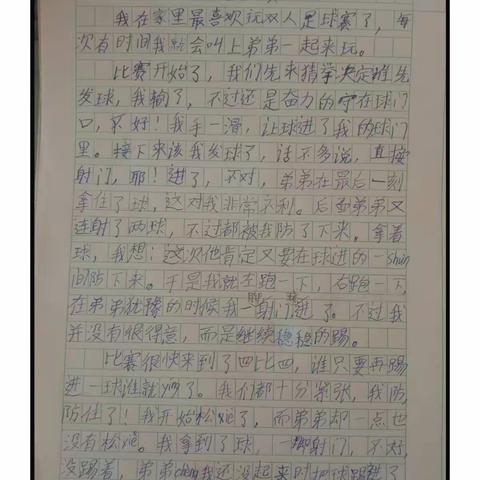 我在家里最喜欢玩双人足球赛了，每
次有时间我就会叫上弟弟一起来玩。
比赛开始了，我们先来猜拳决定谁先
发球，我输了，不过还是奋力的守在球门
口，不好！我手一滑，让球进了我的球门
里。接下来该我发球了，话不多说，直接
射门，耶！进了，不对，弟弟在最后一刻
拿住了球，这对我非常不利。后面弟弟又
连射了两球，不过都被我防了下来。拿着
球，我想：这次他肯定又要在球进的一shùn
间防下来。于是我就左跑一下，右跑一下，
在弟弟犹豫的时候我一射门进了。不过我
并没有很得意，而是继续稳稳的踢。
比赛很快来到了四比四，谁只要再踢
进一球谁就yíng了。我们都十分紧张，我防，
防住了！我开始松xiè了，而弟弟却一点也
没有松xiè。我拿到了球，一脚射门，不对，
没踢着，弟弟chèn我还没起来时把球踢进了